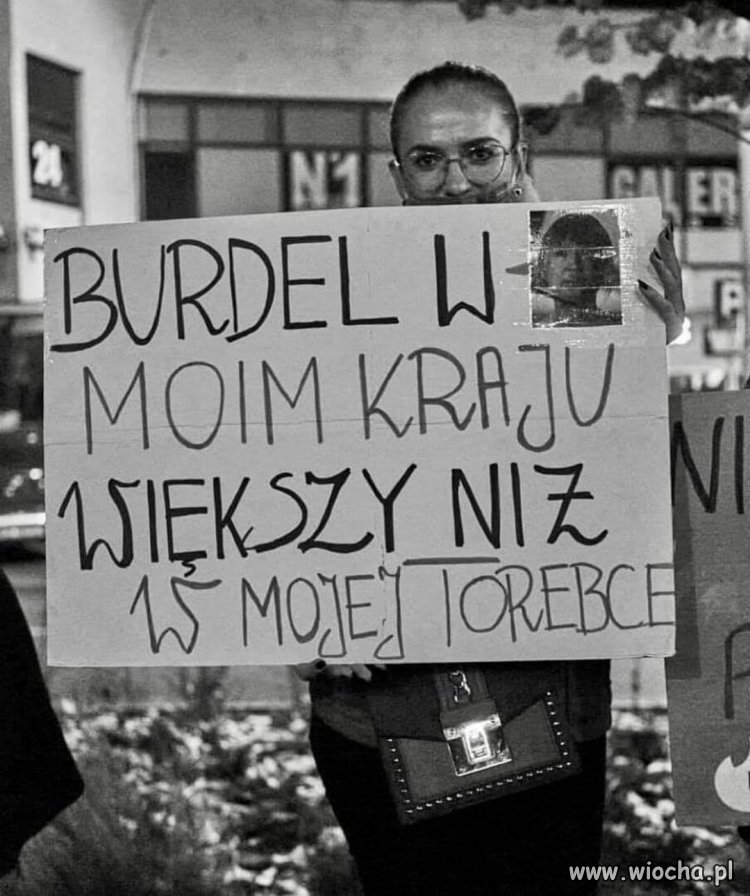 24
N°1
GALER
BURDEL W
MOIM KRAJU
WIĘKSZY NIŻ
W MOJEJ TOREBCE
NI
www.wiocha.pl